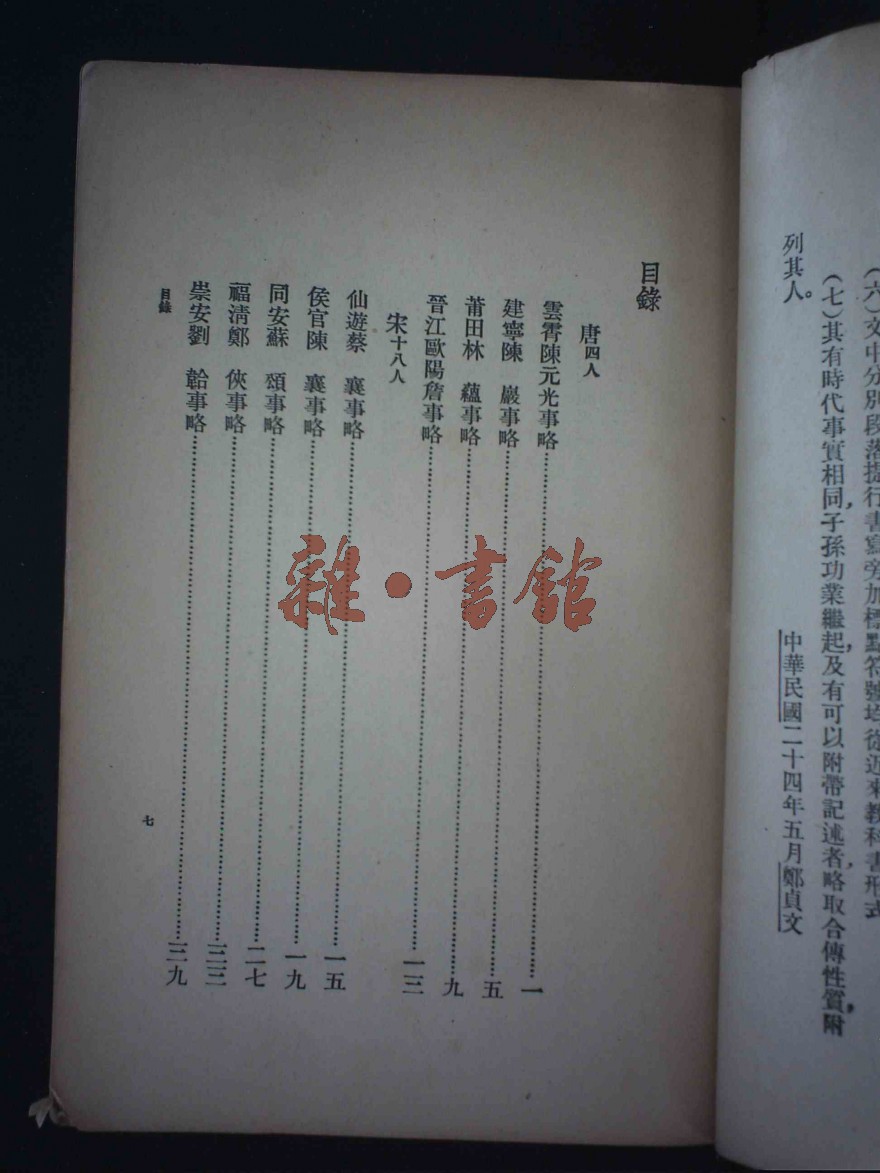 (六)文中分別段落提行書寫旁加標點符號均從近來教科書形式
(七)其有時代事實相同,子孫功業繼起,及有可以附帶記述者,略取合傳性質,附
列其人。
中華民國二十四年五月鄭貞文
目錄
唐四人
雲霄陳元光事略……一
建寧陳 巖事略……五
莆田林 蘊事略……九
晉江歐陽詹事略……一三
宋十八人
仙遊蔡 襄事略……一五
侯官陳 襄事略……一九
同安蘇 頌事略……二七
福清鄭 俠事略……三三
崇安劉 韐事略……三九
目錄
七
雜·書館